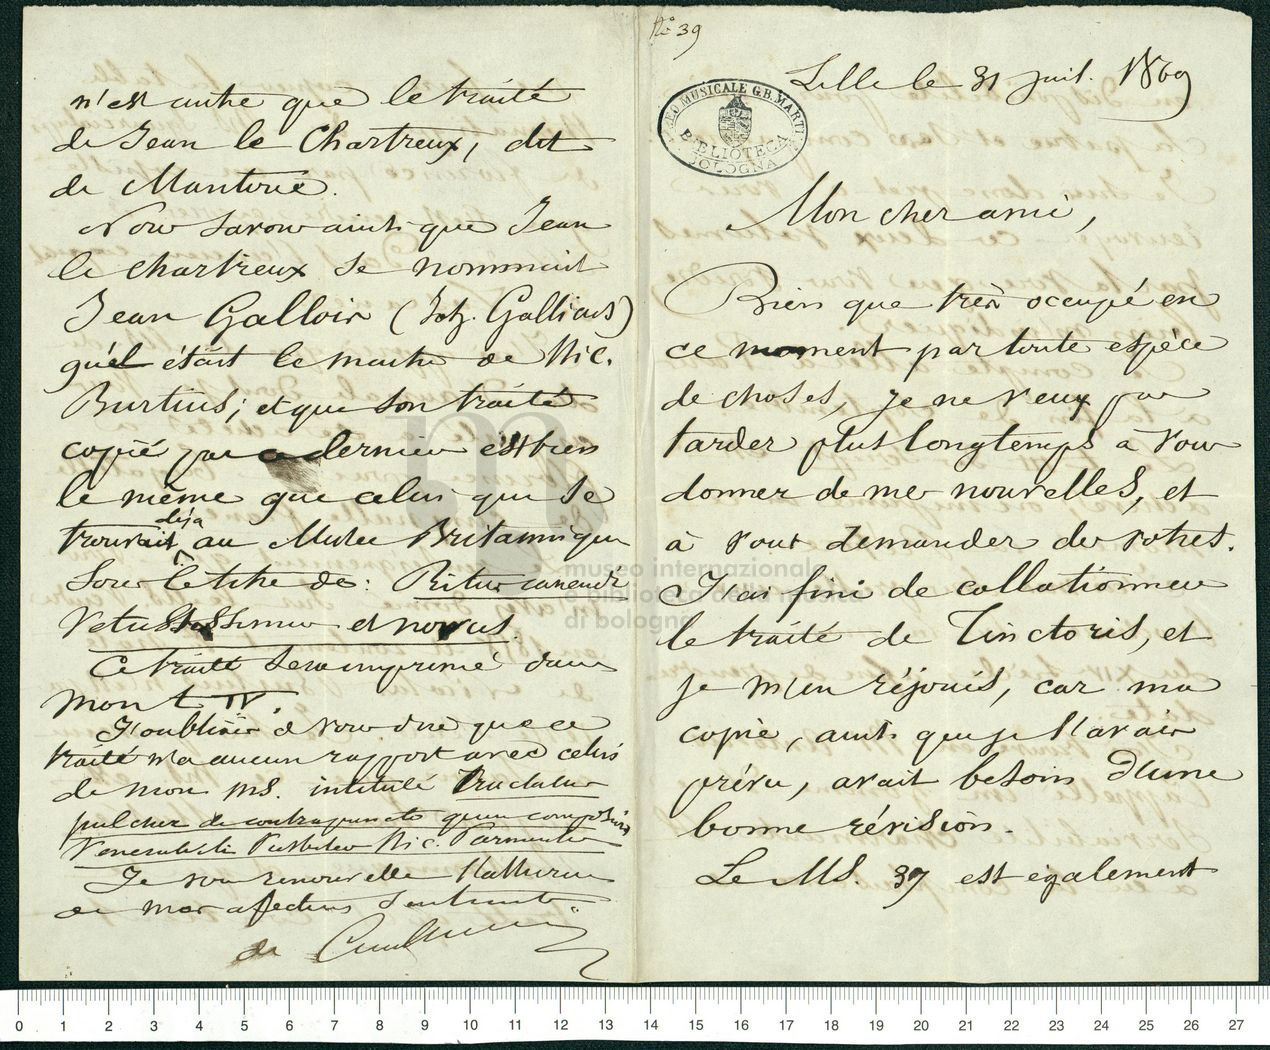 N.° 39
Lille le 31 juil. 1869
MUSEO MUSICALE G.B. MARTINI
BIBLIOTECA
BOLOGNA
Mon cher ami,
Bien que très occupé en
ce moment par toute espèce
de choses, je ne veux pas
tarder plus longtemps à vous
donner de mes nouvelles, et
à vous demander des votres.
J'ai fini de collationner
le traité de Tinctoris, et
je m'en réjouis, car ma
copie, ainsi que je l'avais
prévu, avait besoin d'une
bonne révision.
Le MS. 37 est également
n'est autre que le traité
de Jean le Chartreux, dit
de Mantoue.
Nous savons ainsi que Jean
le chartreux se nommait
Jean Gallois (Joh. Gallicus)
qu'il était le maitre de Nic.
Burtius; et que son traité
copié par ce dernier est bien
le même que celui qui se
trouvait déja au Musée Britannique
sous le titre de: Ritus canendi
vetustissimus et novus.
Ce traité sera imprimé dans
mon t. IV.
J'oubliais de vous dire que ce
traité n'a aucun rapport avec celui
de mon ms. intitulé Tractatus
pulcher de contrapuncto quem composuit
Venerabilis Presbiter Nic. Parmensis
Je vous renouvelle l'assurance
de mes affectueux sentiments
de Coussemaker
museo internazionale
e biblioteca della musica
di bologna
0 1 2 3 4 5 6 7 8 9 10 11 12 13 14 15 16 17 18 19 20 21 22 23 24 25 26 27